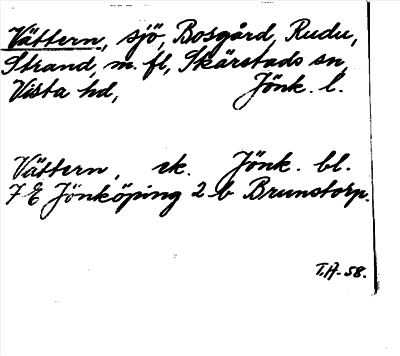 Vättern, sjö, Bosgård, Rudu,
Strand, m. fl, Skärstads sn,
Vista hd, Jönk. l.
Vättern, ek. Jönk. bl.
7 E Jönköping 2 b Brunstorp.
T.H-58.